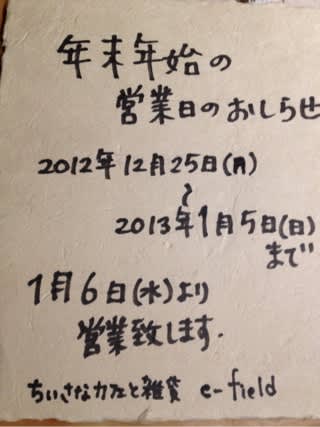 年末年始の
営業日のおしらせ
2012年12月25日(月)
〜
2013年1月5日(日)
まで
1月6日(水)より
営業致します.
ちいさなカフェと雑貨 e-field